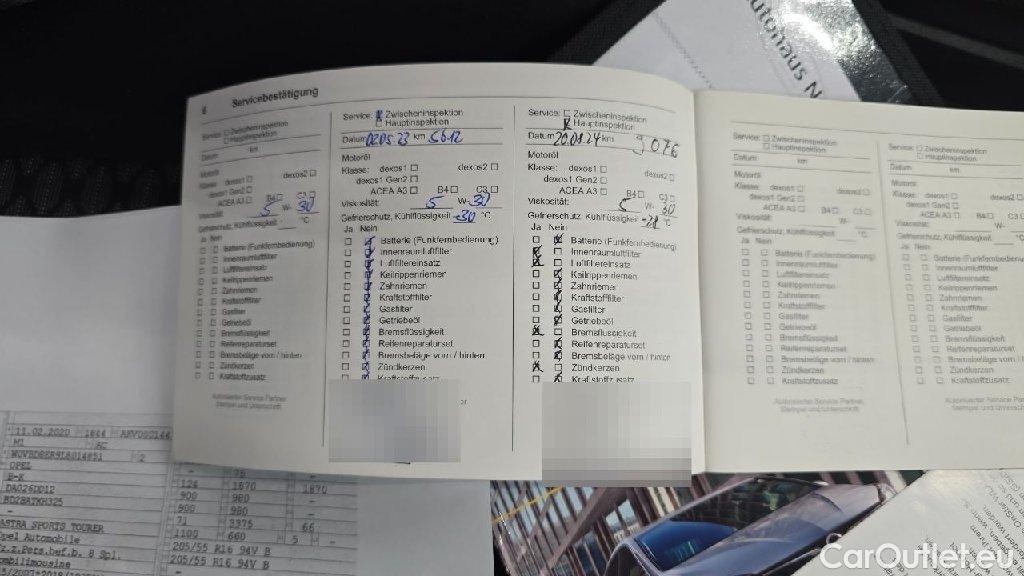 utohaus N
6 Servicebestätigung
Service: Zwischeninspektion
Hauptinspektion
Datum km
Motoröl
Klasse: dexos1 dexos2
dexos1 Gen2
ACEA A3 B4 C3
Viskosität: 5 W- 30
Gefrierschutz, Kühlflüssigkeit °C
Ja Nein
Batterie (Funkfernbedienung)
Innenraumluftfilter
Luftfiltereinsatz
Keilrippenriemen
Zahnriemen
Kraftstofffilter
Gasfilter
Getriebeöl
Bremsflüssigkeit
Reifenreparaturset
Bremsbeläge vorn / hinten
Zündkerzen
Kraftstoffzusatz
Autorisierter Service Partner
Stempel und Unterschrift
Service: Zwischeninspektion
Hauptinspektion
Datum 02.05.23 km 5612
Motoröl
Klasse: dexos1 dexos2
dexos1 Gen2
ACEA A3 B4 C3
Viskosität: 5 W- 30
Gefrierschutz, Kühlflüssigkeit -30 °C
Ja Nein
Batterie (Funkfernbedienung)
Innenraumluftfilter
Luftfiltereinsatz
Keilrippenriemen
Zahnriemen
Kraftstofffilter
Gasfilter
Getriebeöl
Bremsflüssigkeit
Reifenreparaturset
Bremsbeläge vorn / hinten
Zündkerzen
Kraftstoffzusatz
Service: Zwischeninspektion
Hauptinspektion
Datum km 9076
Motoröl
Klasse: dexos1 dexos2
dexos1 Gen2
ACEA A3 B4 C3
Viskosität: 5 W- 30
Gefrierschutz, Kühlflüssigkeit -28 °C
Ja Nein
Batterie (Funkfernbedienung)
Innenraumluftfilter
Luftfiltereinsatz
Keilrippenriemen
Zahnriemen
Kraftstofffilter
Gasfilter
Getriebeöl
Bremsflüssigkeit
Reifenreparaturset
Bremsbeläge vorn / hinten
Zündkerzen
Kraftstoffzusatz
Service: Zwischeninspektion
Hauptinspektion
Datum km
Motoröl
Klasse: dexos1 dexos2
dexos1 Gen2
ACEA A3 B4 C3
Viskosität: W-
Gefrierschutz, Kühlflüssigkeit °C
Ja Nein
Batterie (Funkfernbedienung)
Innenraumluftfilter
Luftfiltereinsatz
Keilrippenriemen
Zahnriemen
Kraftstofffilter
Gasfilter
Getriebeöl
Bremsflüssigkeit
Reifenreparaturset
Bremsbeläge vorn / hinten
Zündkerzen
Kraftstoffzusatz
Autorisierter Service Partner
Stempel und Unterschrift
Service: Zwischeninspektion
Hauptinspektion
Datum
Motoröl
Klasse: dexos1
dexos1 Gen2
ACEA A3
Viskosität:
Gefrierschutz, Kühlflüssigkeit
Ja Nein
Batterie (Funkfernbedienun
Innenraumluftfilter
Luftfiltereinsatz
Keilrippenriemen
Zahnriemen
Kraftstofffilter
Gasfilter
Getriebeöl
Bremsflüssigkeit
Reifenreparaturset
Bremsbeläge vorn / hinten
Zündkerzen
Kraftstoffzusatz
Autorisierter Service Partne
Stempel und Unterschrift
11.02.2020 1844
M1 AC
2
OPEL
B-K
ASTRA SPORTS TOURER
Opel Automobile
Fz.z.Pers.bef.b. 8 Spl.
ombilimousine
75
124 1870 1870
900 980
900 980
71 3375 66
1100 660 5
205/55 R16 94V B
205/55 R16 94V B
CarOutlet.eu